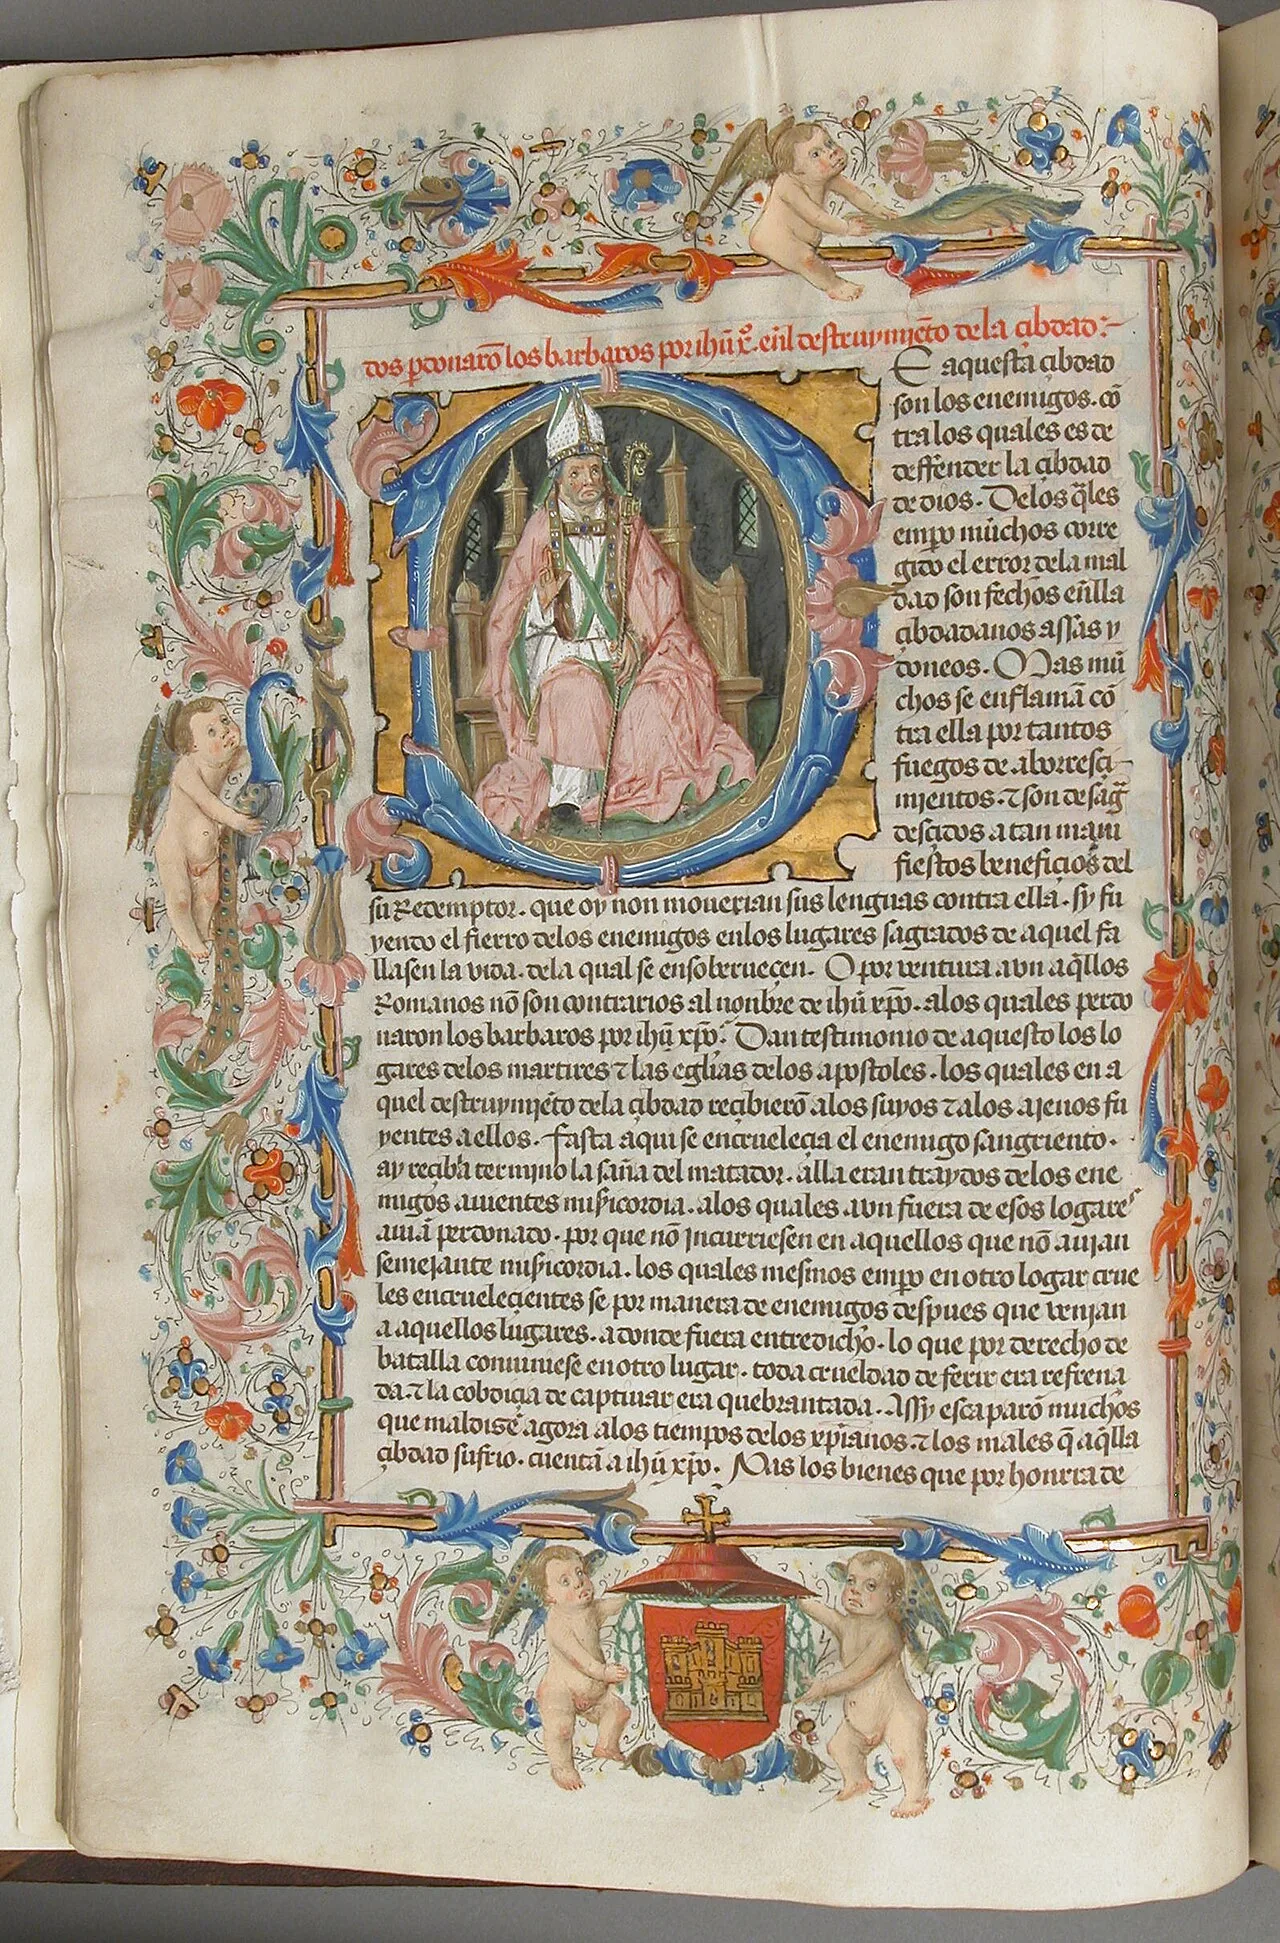 dos ꝑdonarõ los barbaros por ihũ x̃. eñl destruymiẽto de la çibdad:
E aquesta çibdad
son los enemigos. cõ
tra los quales es de
deffender la çibdad
de dios. Delos q̃les
empo muchos corre
gido el error dela mal
dad son fechos eñlla
çibdadanos assas y
doneos. Mas mũ
chos se enflamã cõ
tra ella por tantos
fuegos de aborresçi
mientos. ⁊ son desag̃
desçidos a tan mani
fiestos beneficios del
su Redemptor. que oy non mouerian sus lenguas contra ella. sy fu
yendo el fierro delos enemigos enlos lugares sagrados de aquel fa
llasen la vida. dela qual se ensoberueçen. O por ventura avn aq̃llos
Romanos nõ son contrarios al nonbre de ihũ xp̃o. alos quales perdo
naron los barbaros por ihũ xp̃o. Dan testimonio de aquesto los lo
gares delos martires ⁊ las eglias delos apostoles. los quales en a
quel destruymiẽto dela çibdad reçibierõ alos suyos ⁊ alos ajenos fu
yentes a ellos. fasta aqui se encruelecia el enemigo sangriento.
ay reçibia termino la saña del matador. alla eran traydos delos ene
migos auientes mis̃icordia. alos quales avn fuera de esos logares
auiã perdonado. por que nõ jncurriesen en aquellos que nõ auian
semejante mis̃icordia. los quales mesmos empo en otro logar crue
les encrueleçientes se por manera de enemigos despues que venjan
a aquellos lugares. adonde fuera entredicho. lo que por derecho de
batalla conuiniese en otro lugar. toda crueldad de ferir era refrena
da. ⁊ la cobdiçia de captiuar era quebrantada. Assy escaparõ muchos
que maldisẽ agora alos tiempos delos xp̃ianos. ⁊ los males q̃ aq̃lla
çibdad sufrio. cuentã a ihũ xp̃o. Mas los bienes que por honrra de